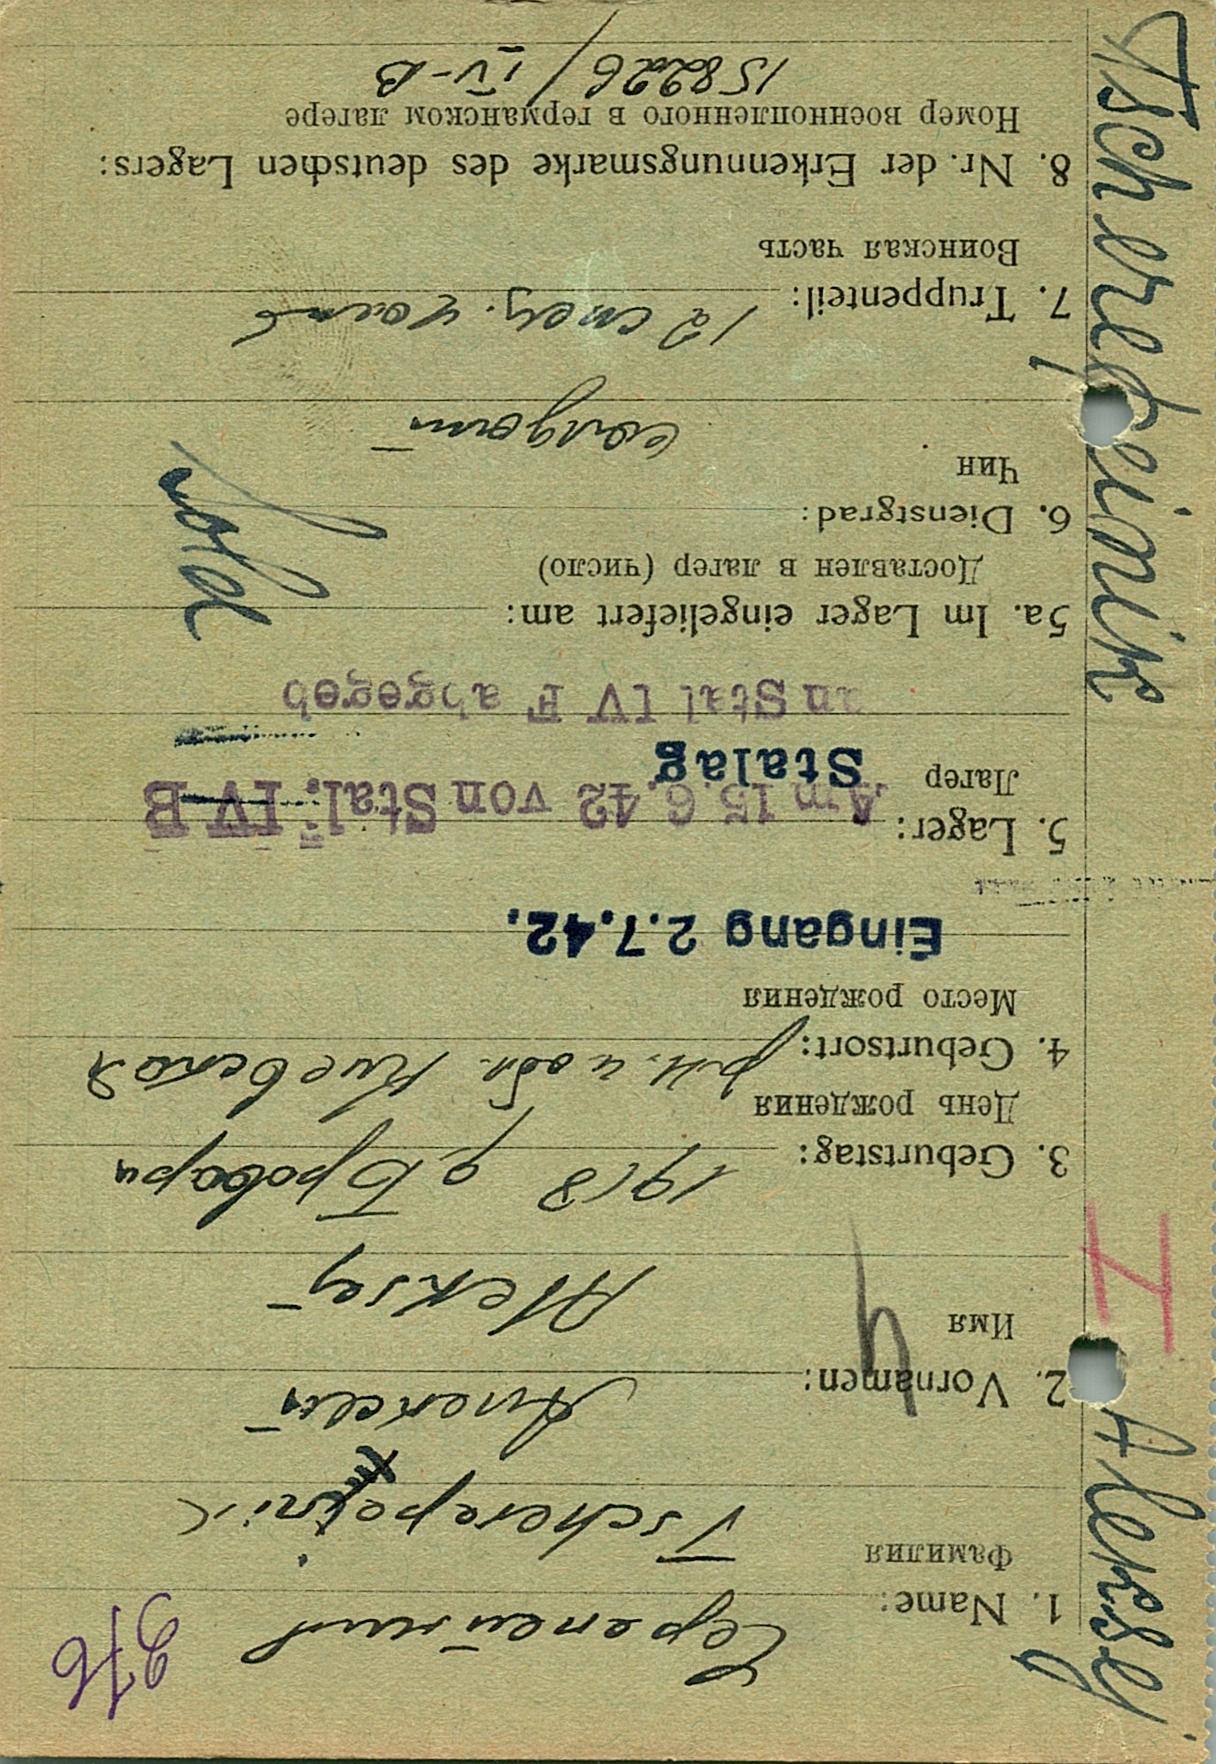 Tscherepeinik Aleksej
976
1. Name: Черепейник
Фамилия
Tscherepeinik
2. Vornamen: Алексей
Имя
Aleksej
3. Geburtstag: 1918 д. Бровари
День рождения
4. Geburtsort: р.н. и обл. Киевская
Место рождения
Eingang 2.7.42.
5. Lager: Am 15.6.42 von Stal. IV B
Лагер
Stalag
an Stal IV F abgegeb
5a. Im Lager eingeliefert am:
Доставлен в лагер (число)
6. Dienstgrad: Sold
Чин
солдат
7. Truppenteil: 12 спец. часть
Воинская часть
8. Nr. der Erkennungsmarke des deutschen Lagers:
Номер военнопленного в германском лагере
158226/IV-B
I
4